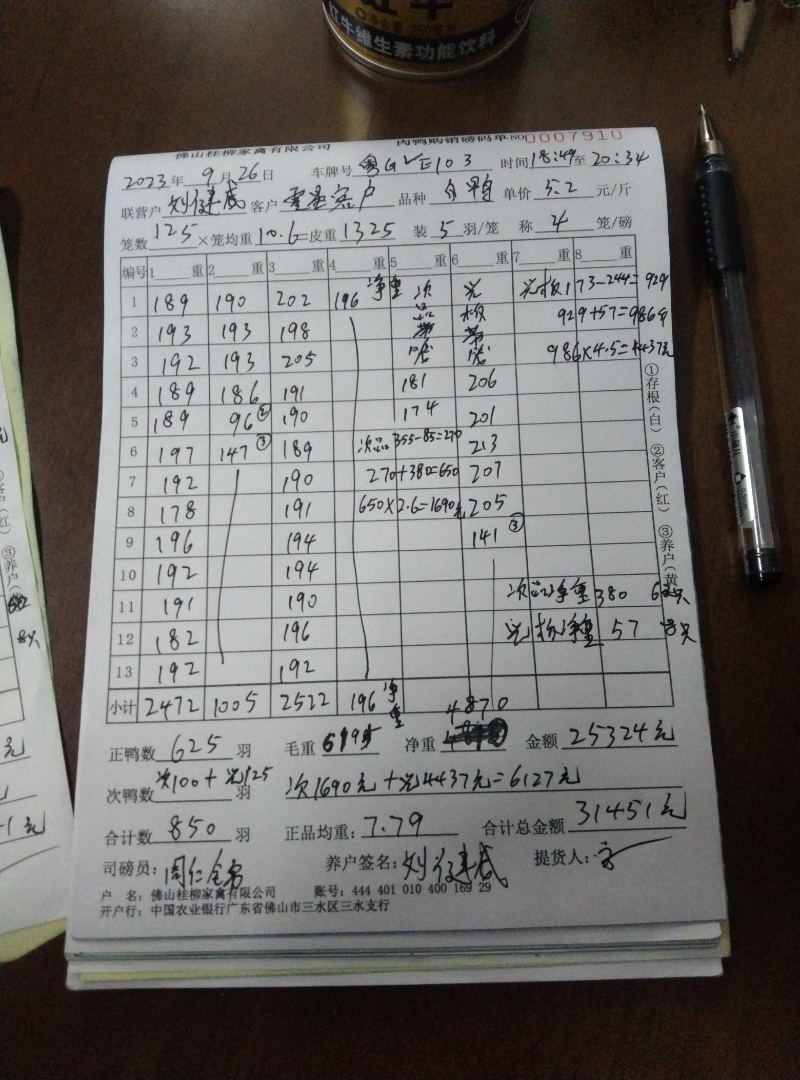 红牛维生素功能饮料
佛山桂柳家禽有限公司 肉鸭购销磅码单 NO 0007910
2023年 9月26日 车牌号 粤G 103 时间 18:49至20:34
联营户 客户 品种 白鸭 单价 5.2 元/斤
笼数 125 ×笼均重 10.6 =皮重 1325 装 5 羽/笼 称 4 笼/磅
编号 1 重 2 重 3 重 4 重 5 重 6 重 7 重 8 重
1 189 190 202 196 净重 次 光 173-244=929
2 193 193 198 品 929+57=986斤
3 192 193 205 986×4.5=4437元
4 189 186 191 181 206
5 189 96② 190 174 201
6 197 147③ 189 次品355-85=270 213
7 192 190 270+380=650 207
8 178 191 650×2.6=1690元 205
9 196 194 141③
10 192 194
11 191 190 次品净重 380
12 182 196 净重 57
13 192 192
小计 2472 1005 2522 196 净重
正鸭数 625 羽 毛重 6195 净重 4870 金额 25324元
次鸭数 次100+光125 羽 次1690元+光4437元=6127元
合计数 850 羽 正品均重: 7.79 合计总金额 31451元
司磅员: 养户签名: 提货人:
户 名: 佛山桂柳家禽有限公司 账号: 444 401 010 400 169 29
开户行: 中国农业银行广东省佛山市三水区三水支行
①存根(白) ②客户(红) ③养户(黄